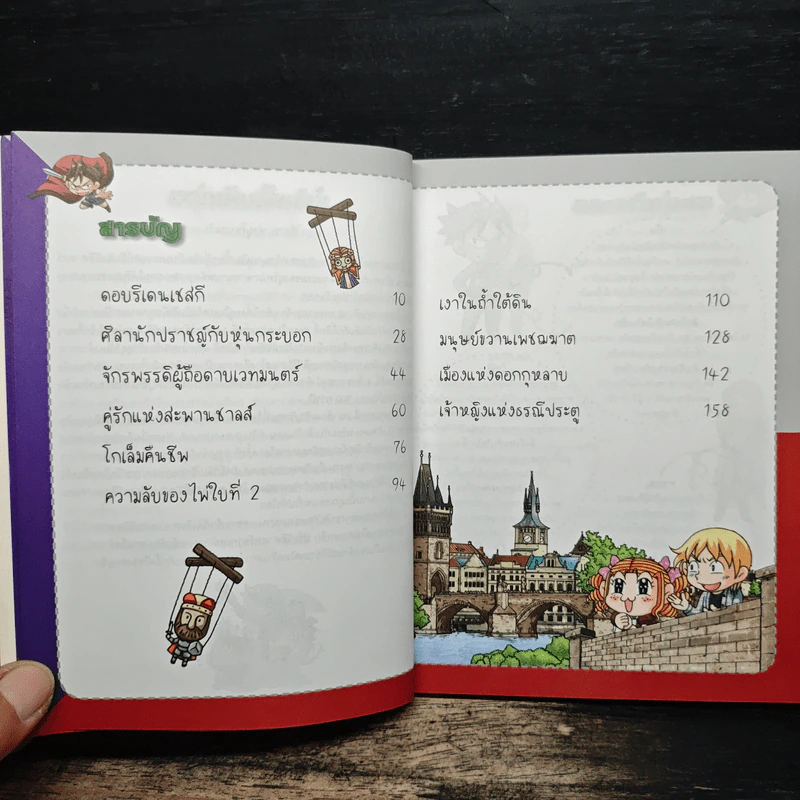 สารบัญ
ดอบรีเดนเชสกี 10
ศิลานักปราชญ์กับหุ่นกระบอก 28
จักรพรรดิผู้ถือดาบเวทมนตร์ 44
คู่รักแห่งสะพานชาลส์ 60
โกเล็มคืนชีพ 76
ความลับของไพ่ใบที่ 2 94
เงาในถ้ำใต้ดิน 110
มนุษย์ขวานเพชฌฆาต 128
เมืองแห่งดอกกุหลาบ 142
เจ้าหญิงแห่งธรณีประตู 158